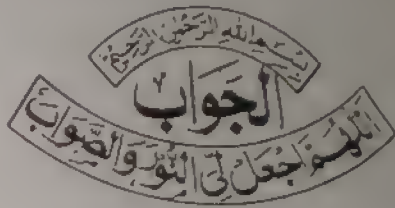 بِسْمِ اللهِ الرَّحْمٰنِ الرَّحِيْمِ
الجَوَابُ
اَللّٰهُمَّ اجْعَلْ لِّي النُّوْرَ وَالصَّوَابَ